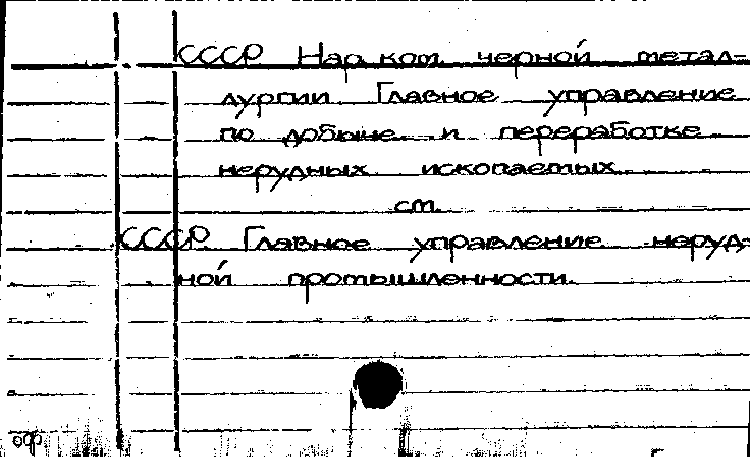 СССР Нар. ком. черной метал-
лургии. Главное управление
по добыче и переработке
нерудных ископаемых
см.
СССР. Главное управление неруд-
ной промышленности.